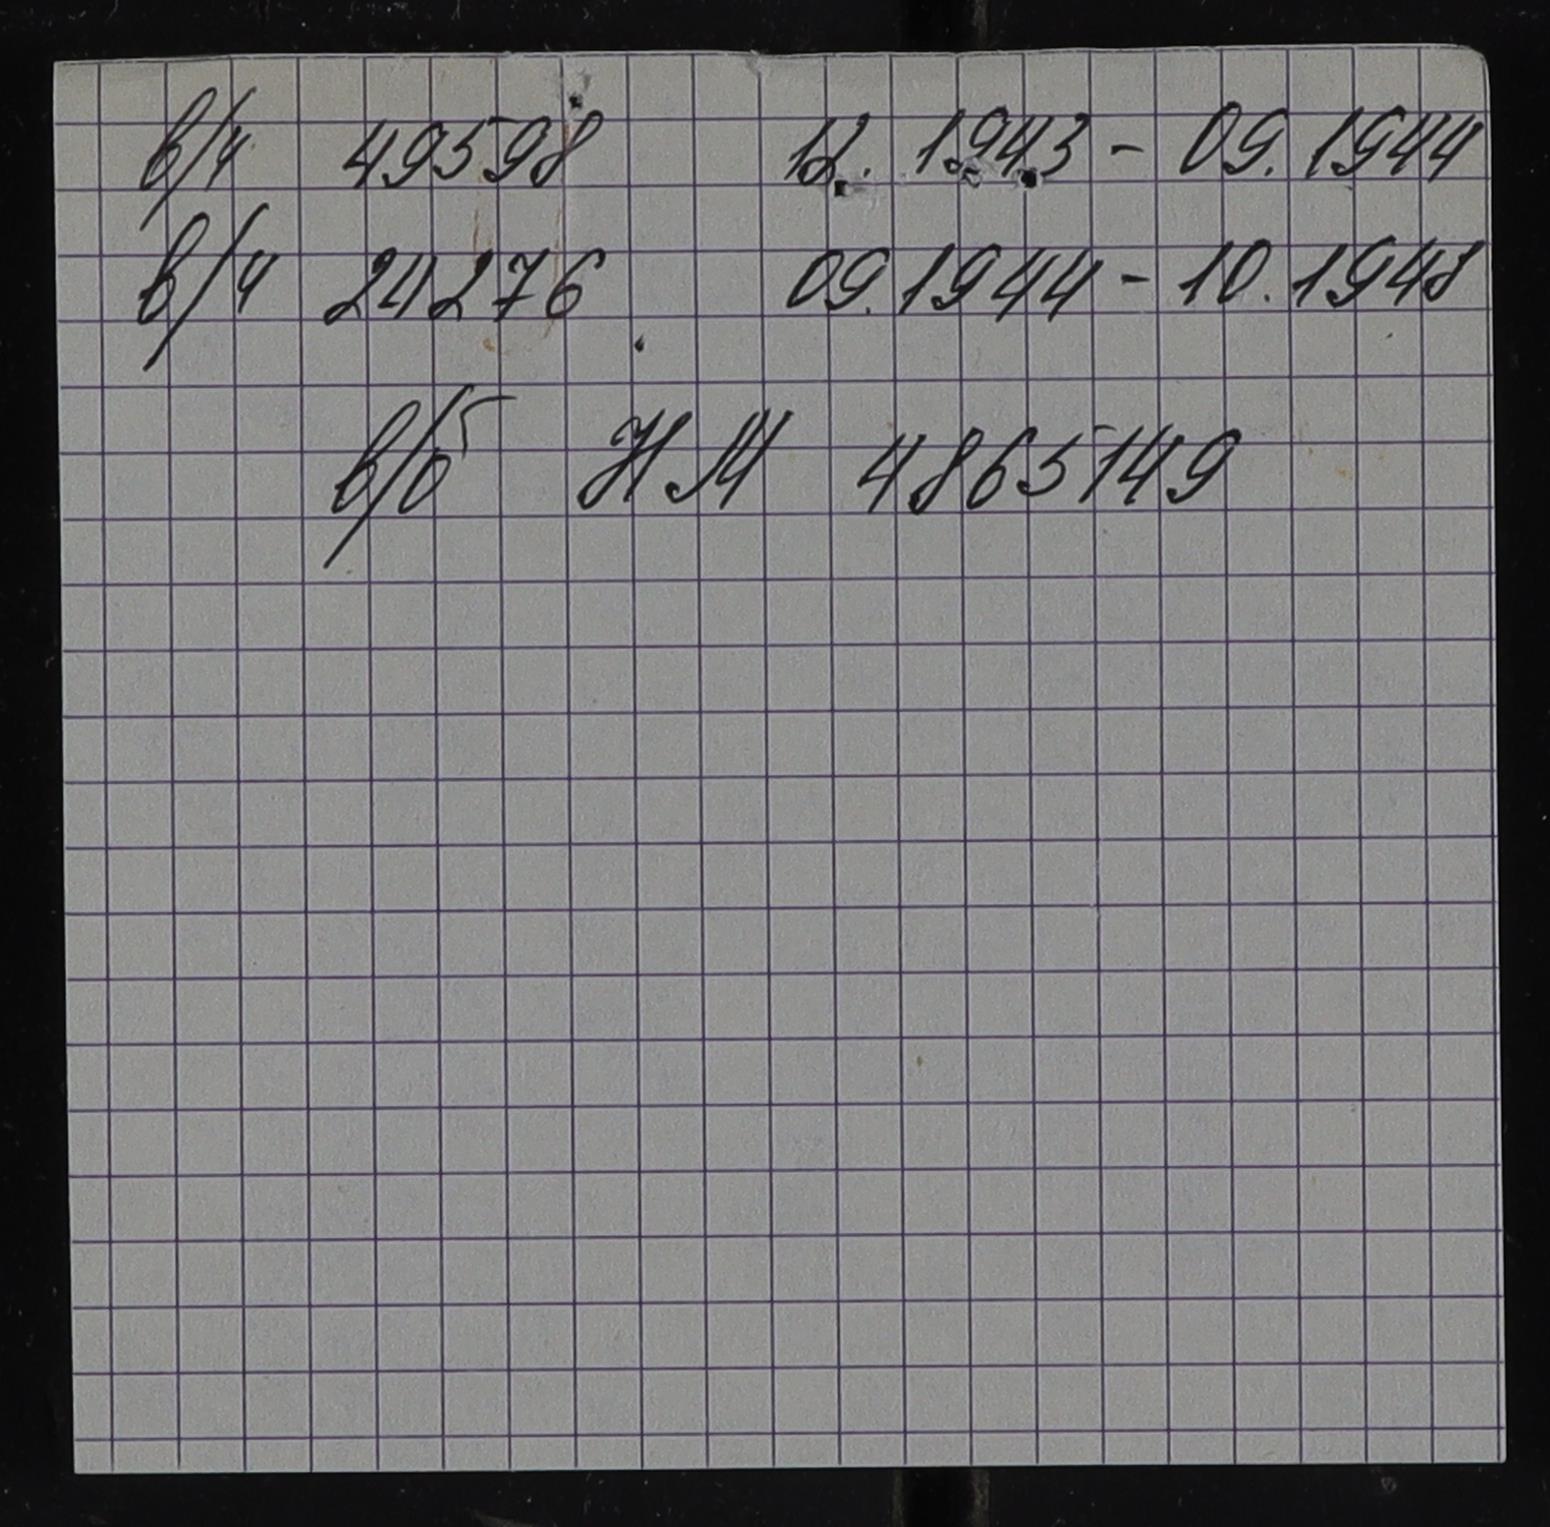 в/ч 49598 12.1943 - 09.1944
в/ч 24276 09.1944 - 10.1948
в/б НМ 4865149